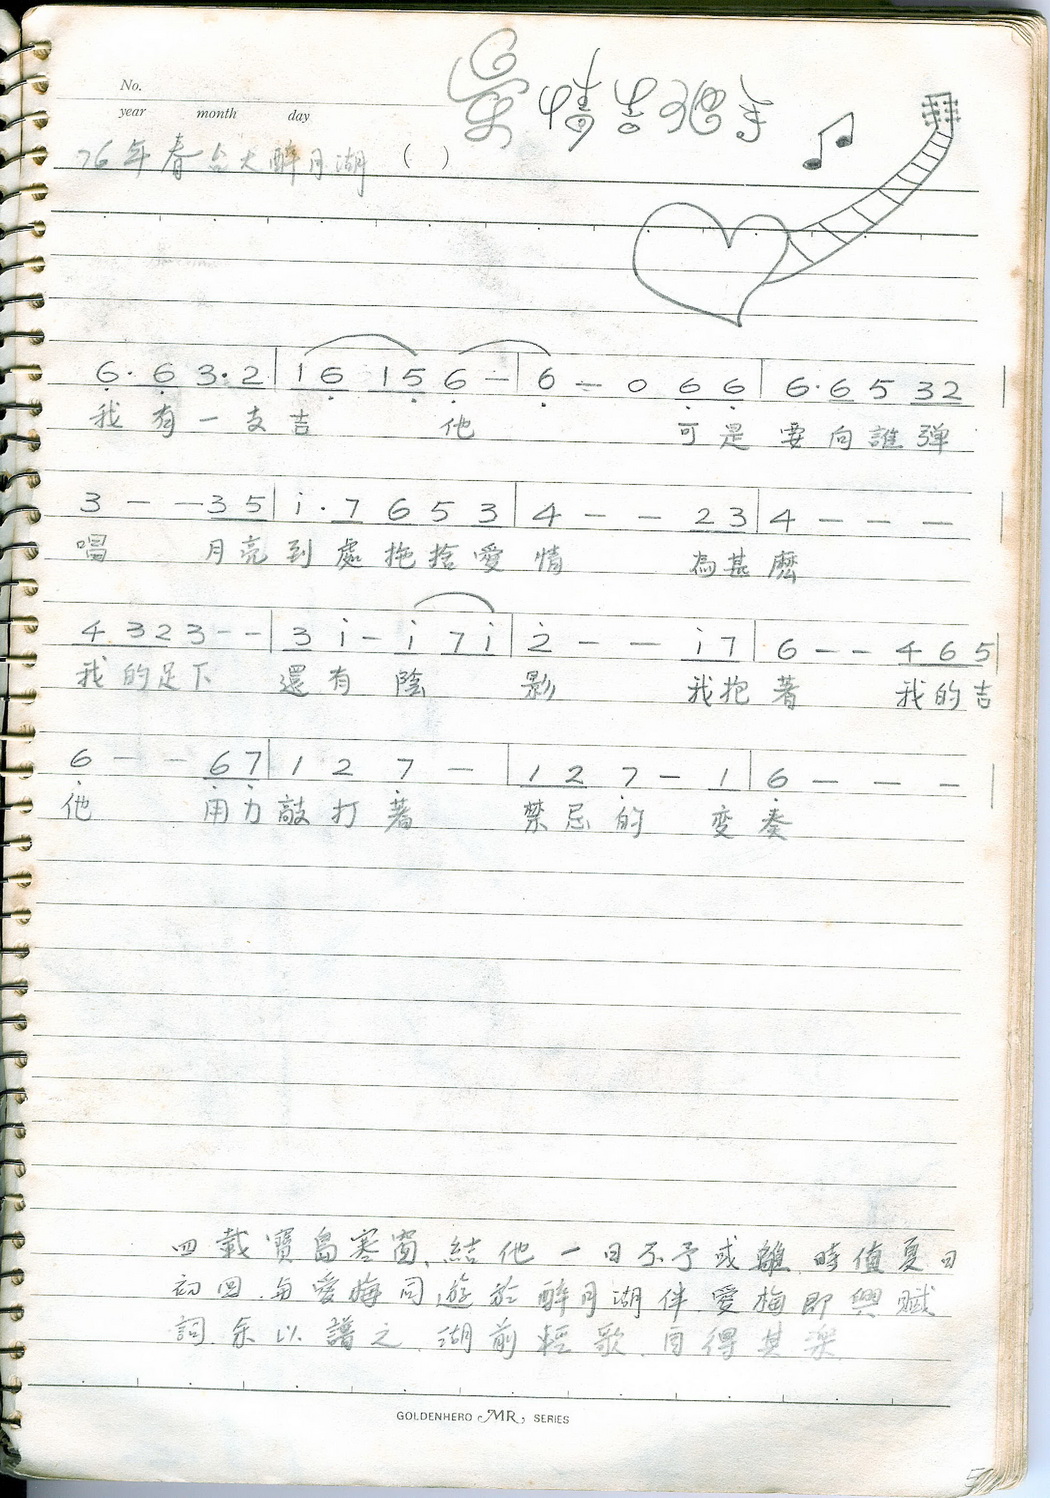 No.
year month day
情吉他手
76年春台大醉月湖 ( )
6· 6 3· 2 | 1 6 1 5 6 – | 6 – 0 6 6 | 6· 6 5 3 2 |
我有一支吉 他 可是要向誰彈
3 – – 3 5 | i · 7 6 5 3 | 4 – – 2 3 | 4 – – – |
唱 月亮到處拖捨愛情 為甚麼
4 3 2 3 – – | 3 i – i 7 i | 2 – – i 7 | 6 – – 4 6 5 |
我的足下 還有陰 影 我抱著 我的吉
6 – – 6 7 | 1 2 7 – | 1 2 7 – 1 | 6 – – – |
他 用力敲打著 禁忌的 變奏
四載寶島寒窗、結他一日不予或離、時值夏日
初四、与愛梅同遊於醉月湖伴、愛梅即興賦
詞、余以譜之、湖前輕歌、自得其樂
GOLDENHERO MR, SERIES